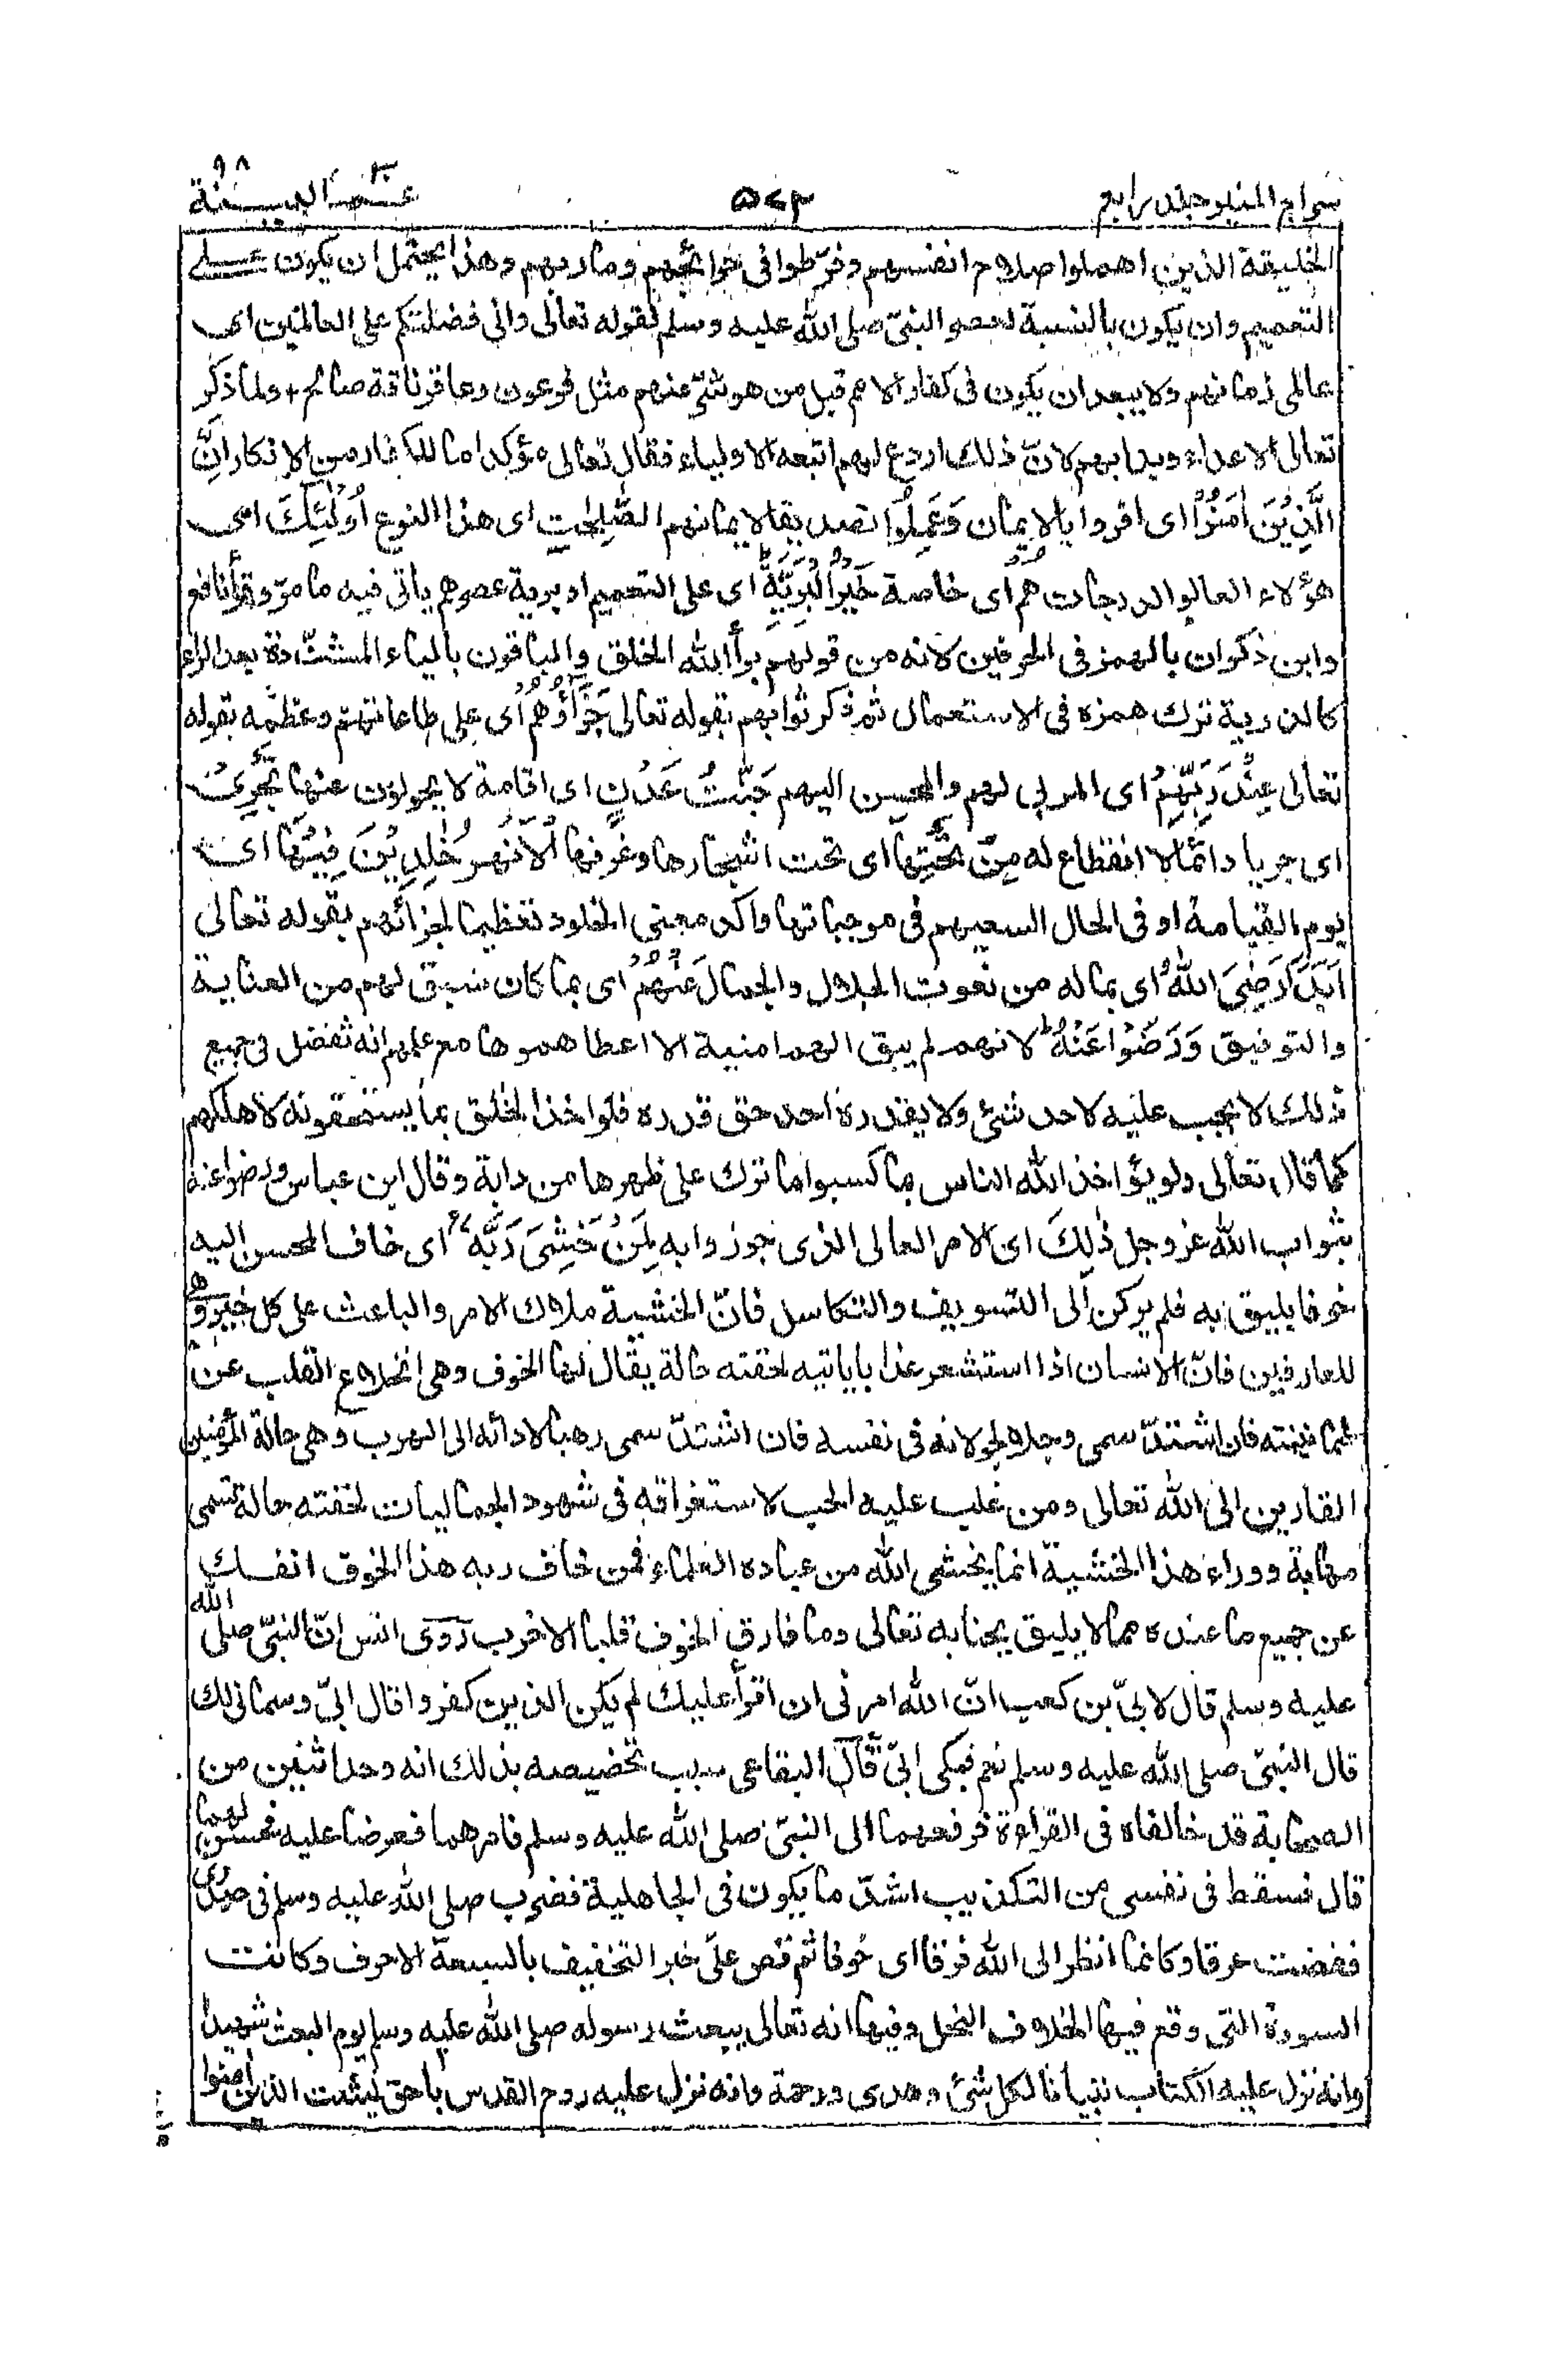 سراج المنير جلد رابع ٥٧٣ عمّ البينة ٩٨
الخليقة الذين اهملوا صلاح انفسهم وفرّطوا فى حوائجهم ومآربهم وهذا يحتمل ان يكون على
التعميم وان يكون بالنسبة لعصر النبىّ صلى الله عليه وسلم لقوله تعالى وانى فضلتكم على العالمين اى
عالمى زمانهم ولا يبعد ان يكون فى كفار الامم قبل من هو شرّ منهم مثل فرعون وعاقر ناقة صالح + ولما ذكر
تعالى الاعداء وبدا بهم لانّ ذلك اردع لهم اتبعه الاولياء فقال تعالى مؤكدا ما للكفار من الانكار اِنَّ
الَّذِيْنَ اٰمَنُوْا اى اقروا بالايمان وَعَمِلُوا تصديقا لايمانهم الصّٰلِحٰتِ اى هذا النوع اُولٰٓئِكَ اى
هؤلاء العالو الدرجات هُمْ اى خاصة خَيْرُ الْبَرِيَّةِ اى على التعميم او برية عصرهم ياتى فيه ما مرّ وقرأ نافع
وابن ذكوان بالهمز فى الحرفين لانه من قولهم برأ الله الخلق والباقون بالياء المشدّدة بعد الراء
كالذرية ترك همزه فى الاستعمال ثم ذكر ثوابهم بقوله تعالى جَزَآؤُهُمْ اى على طاعاتهم وعظمه بقوله
تعالى عِنْدَ رَبِّهِمْ اى المربى لهم والمحسن اليهم جَنّٰتُ عَدْنٍ اى اقامة لا يحولون عنها تَجْرِىْ
اى جريا دائما لا انقطاع له مِنْ تَحْتِهَا اى تحت اشجارها وغرفها الْاَنْهٰرُ خٰلِدِيْنَ فِيْهَا اى
يوم القيامة او فى الحال السعيهم فى موجباتها واكد معنى الخلود تعظيما لجزائهم بقوله تعالى
اَبَدًا رَضِىَ اللّٰهُ اى بماله من نعوت الجلال والجمال عَنْهُمْ اى بما كان سبق لهم من العناية
والتوفيق وَرَضُوْا عَنْهُ لانهم لم يبق لهم امنية الا اعطاهموها مع علمهم انه تفضل فى جميع
ذلك لا يجب عليه لاحد شئ ولا يقدره احد حق قدره فلو اخذ الخلق بما يستحقونه لاهلكهم
كما قال تعالى ولو يؤاخذ الله الناس بما كسبوا ما ترك على ظهرها من دابة وقال ابن عباس ورضوا عنه
بثواب الله عز وجل ذٰلِكَ اى الامر العالى الذى جوزوا به لِمَنْ خَشِىَ رَبَّهٗ اى خاف المحسن اليه
خوفا يليق به فلم يركن الى التسويف والتكاسل فانّ الخشية ملاك الامر والباعث على كل خير وهى
للعارفين فانّ الانسان اذا استشعر عذابا ياتيه لحقته حالة يقال لها الخوف وهى انخلاع القلب عن
طمانينته فان اشتدّ سمى وجلا لجولانه فى نفسه فان اشتدّ سمى رهبا لادائه الى الهرب وهى حالة المؤمنين
الفارين الى الله تعالى ومن غلب عليه الحب لاستغراقه فى شهود الجماليات لحقته حالة تسمى
مهابة ووراء هذا الخشية انما يخشى الله من عباده العلماء فمن خاف ربه هذا الخوف انفك
عن جميع ما عنده مما لا يليق بجنابه تعالى وما فارق الخوف قلبا الا خرب روى انس انّ النبىّ صلى الله
عليه وسلم قال لابىّ بن كعب انّ الله امرنى ان اقرأ عليك لم يكن الذين كفروا قال ابىّ وسمانى لك
قال النبىّ صلى الله عليه وسلم نعم فبكى ابىّ قال البقاعى سبب تخصيصه بذلك انه وجد اثنين من
الصحابة قد خالفاه فى القراءة فرفعهما الى النبىّ صلى الله عليه وسلم فامرهما فعرضا عليه فحسن لهما
قال فسقط فى نفسى من التكذيب اشدّ ما يكون فى الجاهلية فضرب صلى الله عليه وسلم فى صدرى
ففضت عرقا وكانما انظر الى الله فرقا اى خوفا ثم قص علىّ خبر التخفيف بالسبعة الاحرف وكانت
السورة التى وقع فيها الخلاف النحل وفيها انه تعالى يبعث رسوله صلى الله عليه وسلم يوم البعث شهيدا
وانه نزل عليه الكتاب تبيانا لكل شئ وهدى ورحمة وانه نزل عليه روح القدس بالحق ليثبت الذين اٰمنوا